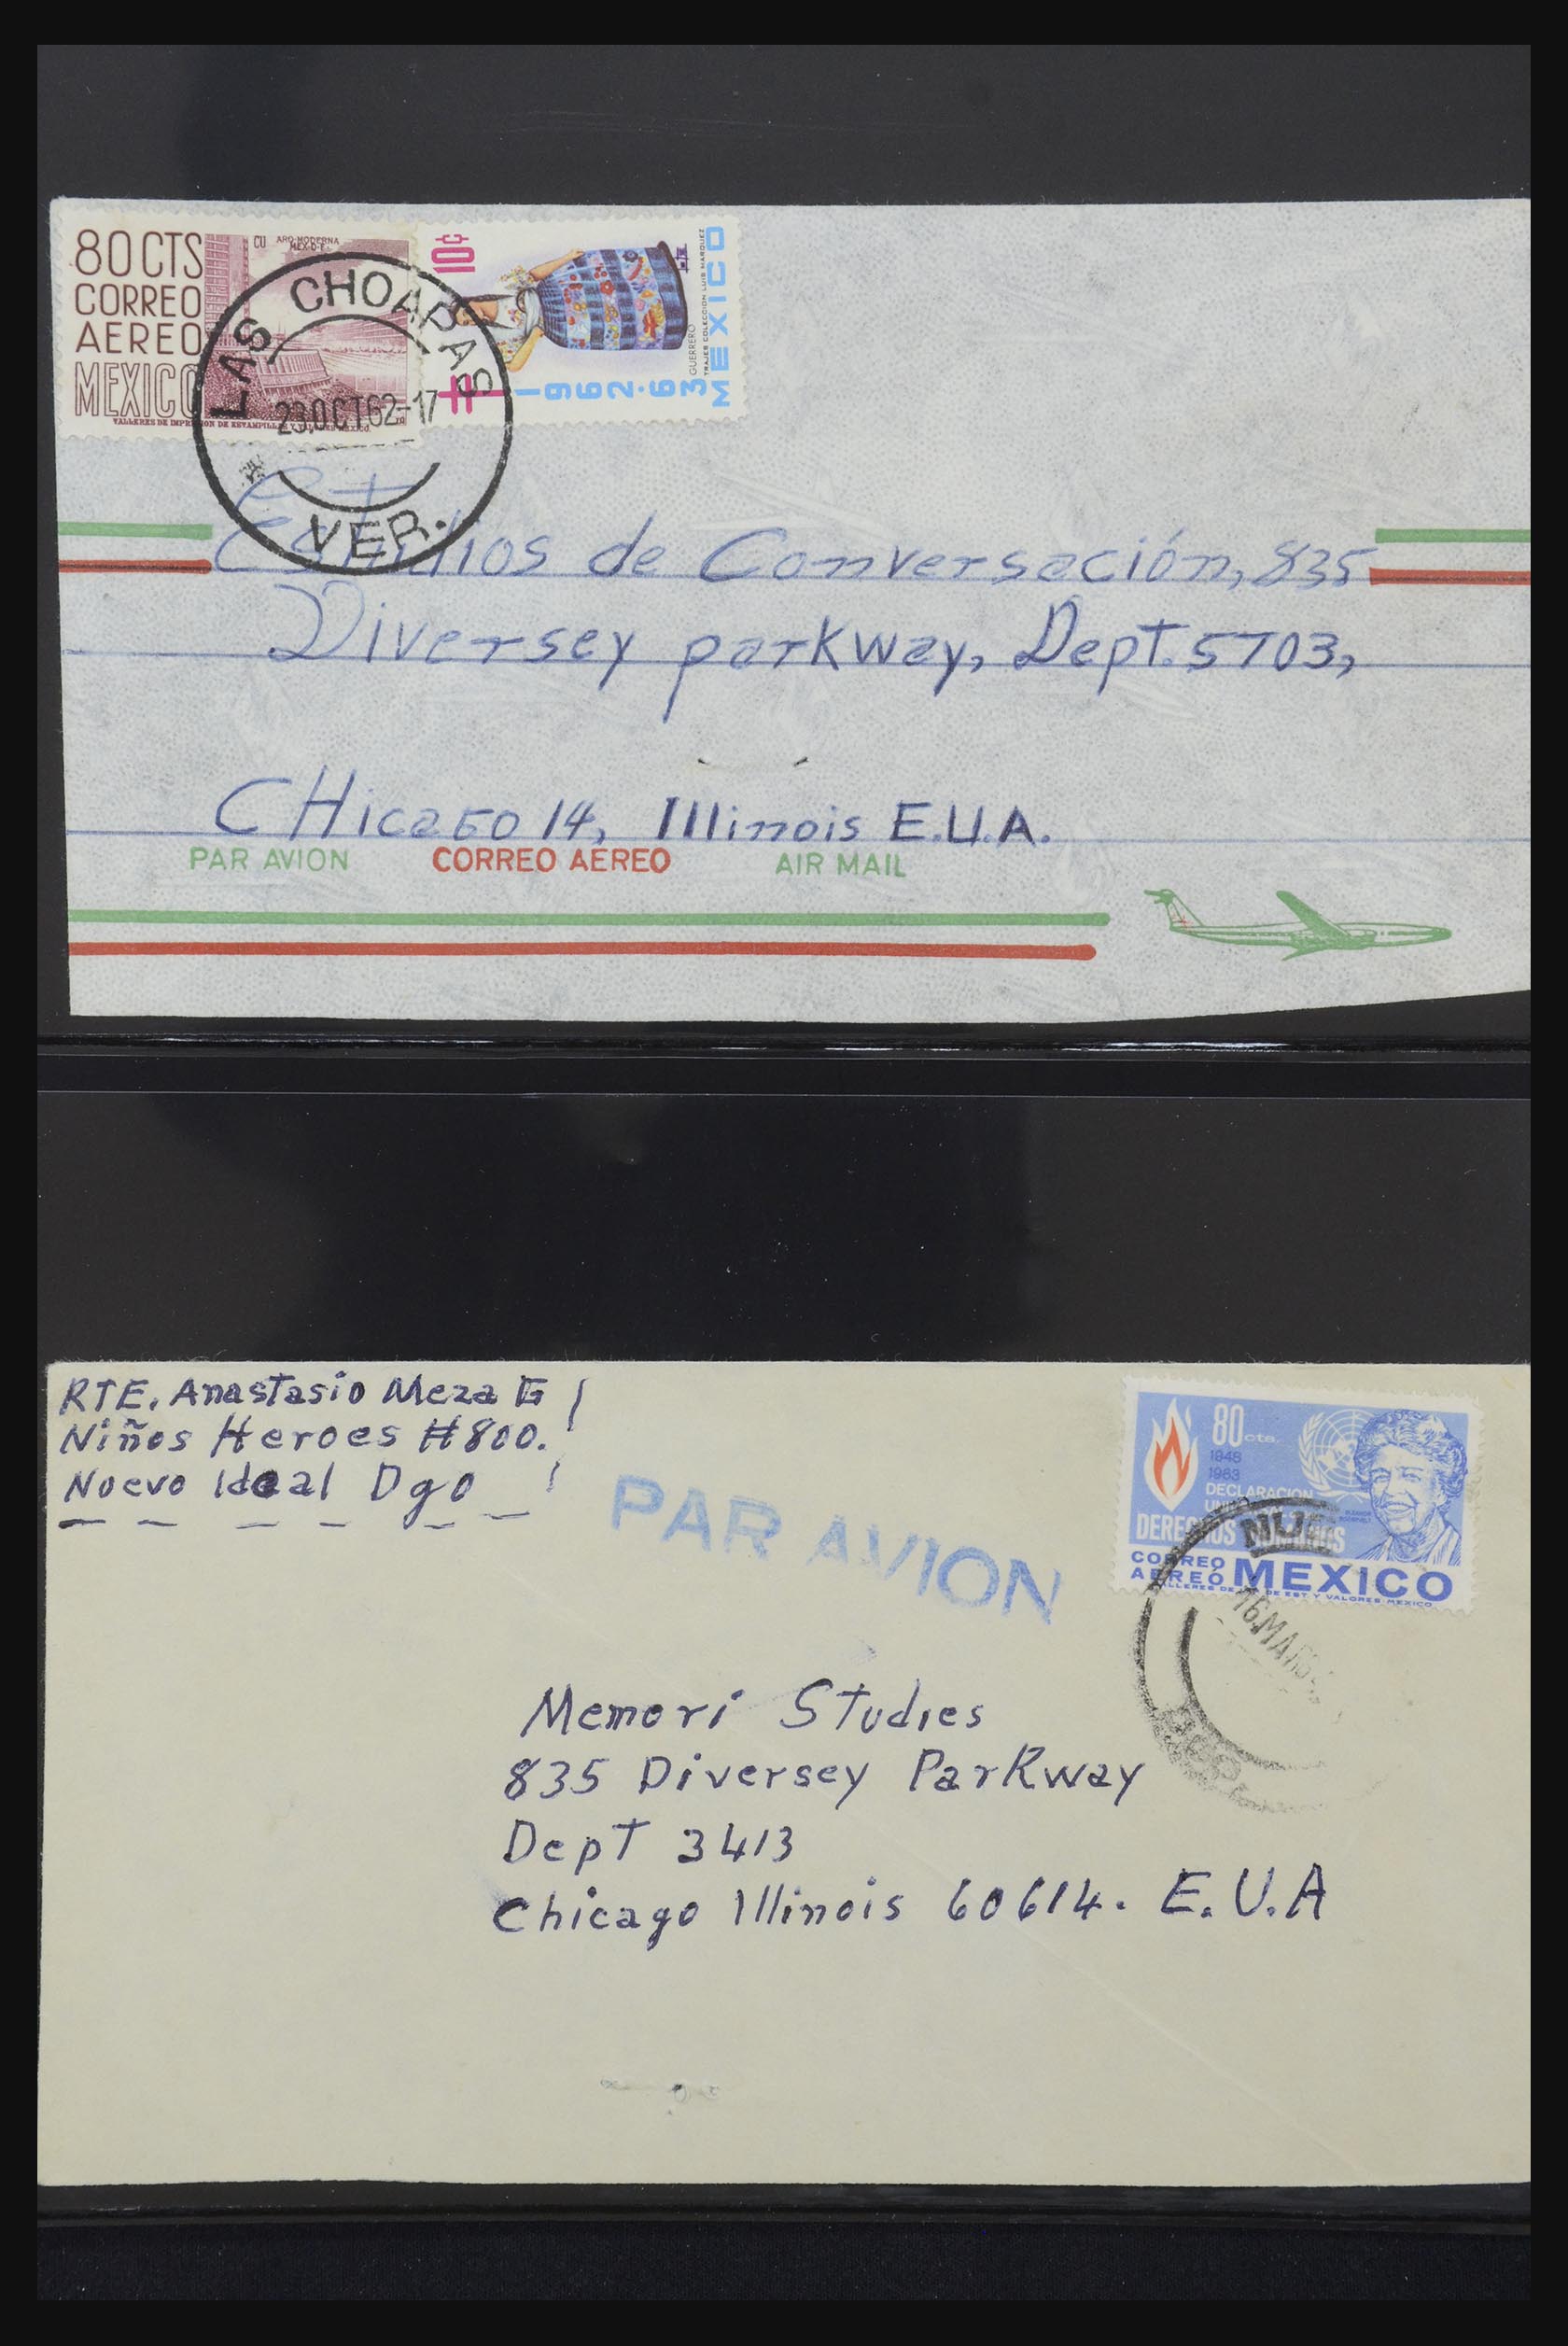 80 CTS
CORREO
AEREO
MEXICO
CU ARQ-MODERNA
MEX-D-F-
TALLERES DE IMPRESION DE ESTAMPILLAS Y VALORES-MEXICO
10¢
1962-63
GUERRERO
TRAJES COLECCION LUIS MARQUEZ
MEXICO
LAS CHOAPAS
23.OCT62-17
VER.
Estudios de Conversación, 835
Diversey parkway, Dept. 5703,
CHicaGo 14, Illinois E.U.A.
PAR AVION CORREO AEREO AIR MAIL
RTE. Anastasio Meza G
Niños Heroes #800.
Nuevo Ideal Dgo
PAR AVION
80 cts.
1948
1963
DECLARACION
DERECHOS HUMANOS
CORREO
AEREO MEXICO
TALLERES DE IMP. DE EST. Y VALORES-MEXICO
16.MAR
Memori Studies
835 Diversey Parkway
Dept 3413
Chicago Illinois 60614. E.U.A